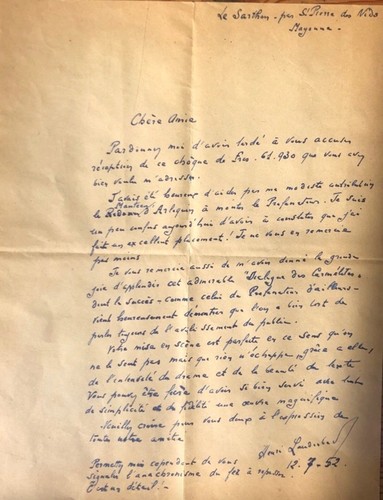 Le Sarthon - par St Pierre des Nids
Mayenne -
Chère Amie
Pardonnez moi d'avoir tardé à vous accuser
réception de ce chèque de Frs. 61.930 que vous avez
bien voulu m'adresser.
J'avais été heureux d'aider par ma modeste contribution
le d'Artigues à monter le Profanateur. Je suis
un peu confus aujourd'hui d'avoir à constater que j'ai
fait un excellent placement! Je ne vous en remercie
pas moins
Je vous remercie aussi de m'avoir donné la grande
joie d'applaudir cet admirable "Dialogue des Carmélites"
dont le succès - comme celui du Profanateur d'ailleurs -
vient heureusement démontrer que l'on a bien tort de
parler toujours de l'avilissement du public.
Votre mise en scène est parfaite en ce sens qu'on
ne la sent pas mais que rien n'échappe, grâce a elle,
de l'intensité du drame et de la beauté du texte
Vous pouvez être fière d'avoir si bien servi avec tant
de simplicité et de fidélité une œuvre magnifique
Veuillez croire pour vous deux à l'expression de
toute notre amitié
12.7-52
Permettez moi cependant de vous
signaler l'anachronisme du fer à repasser.